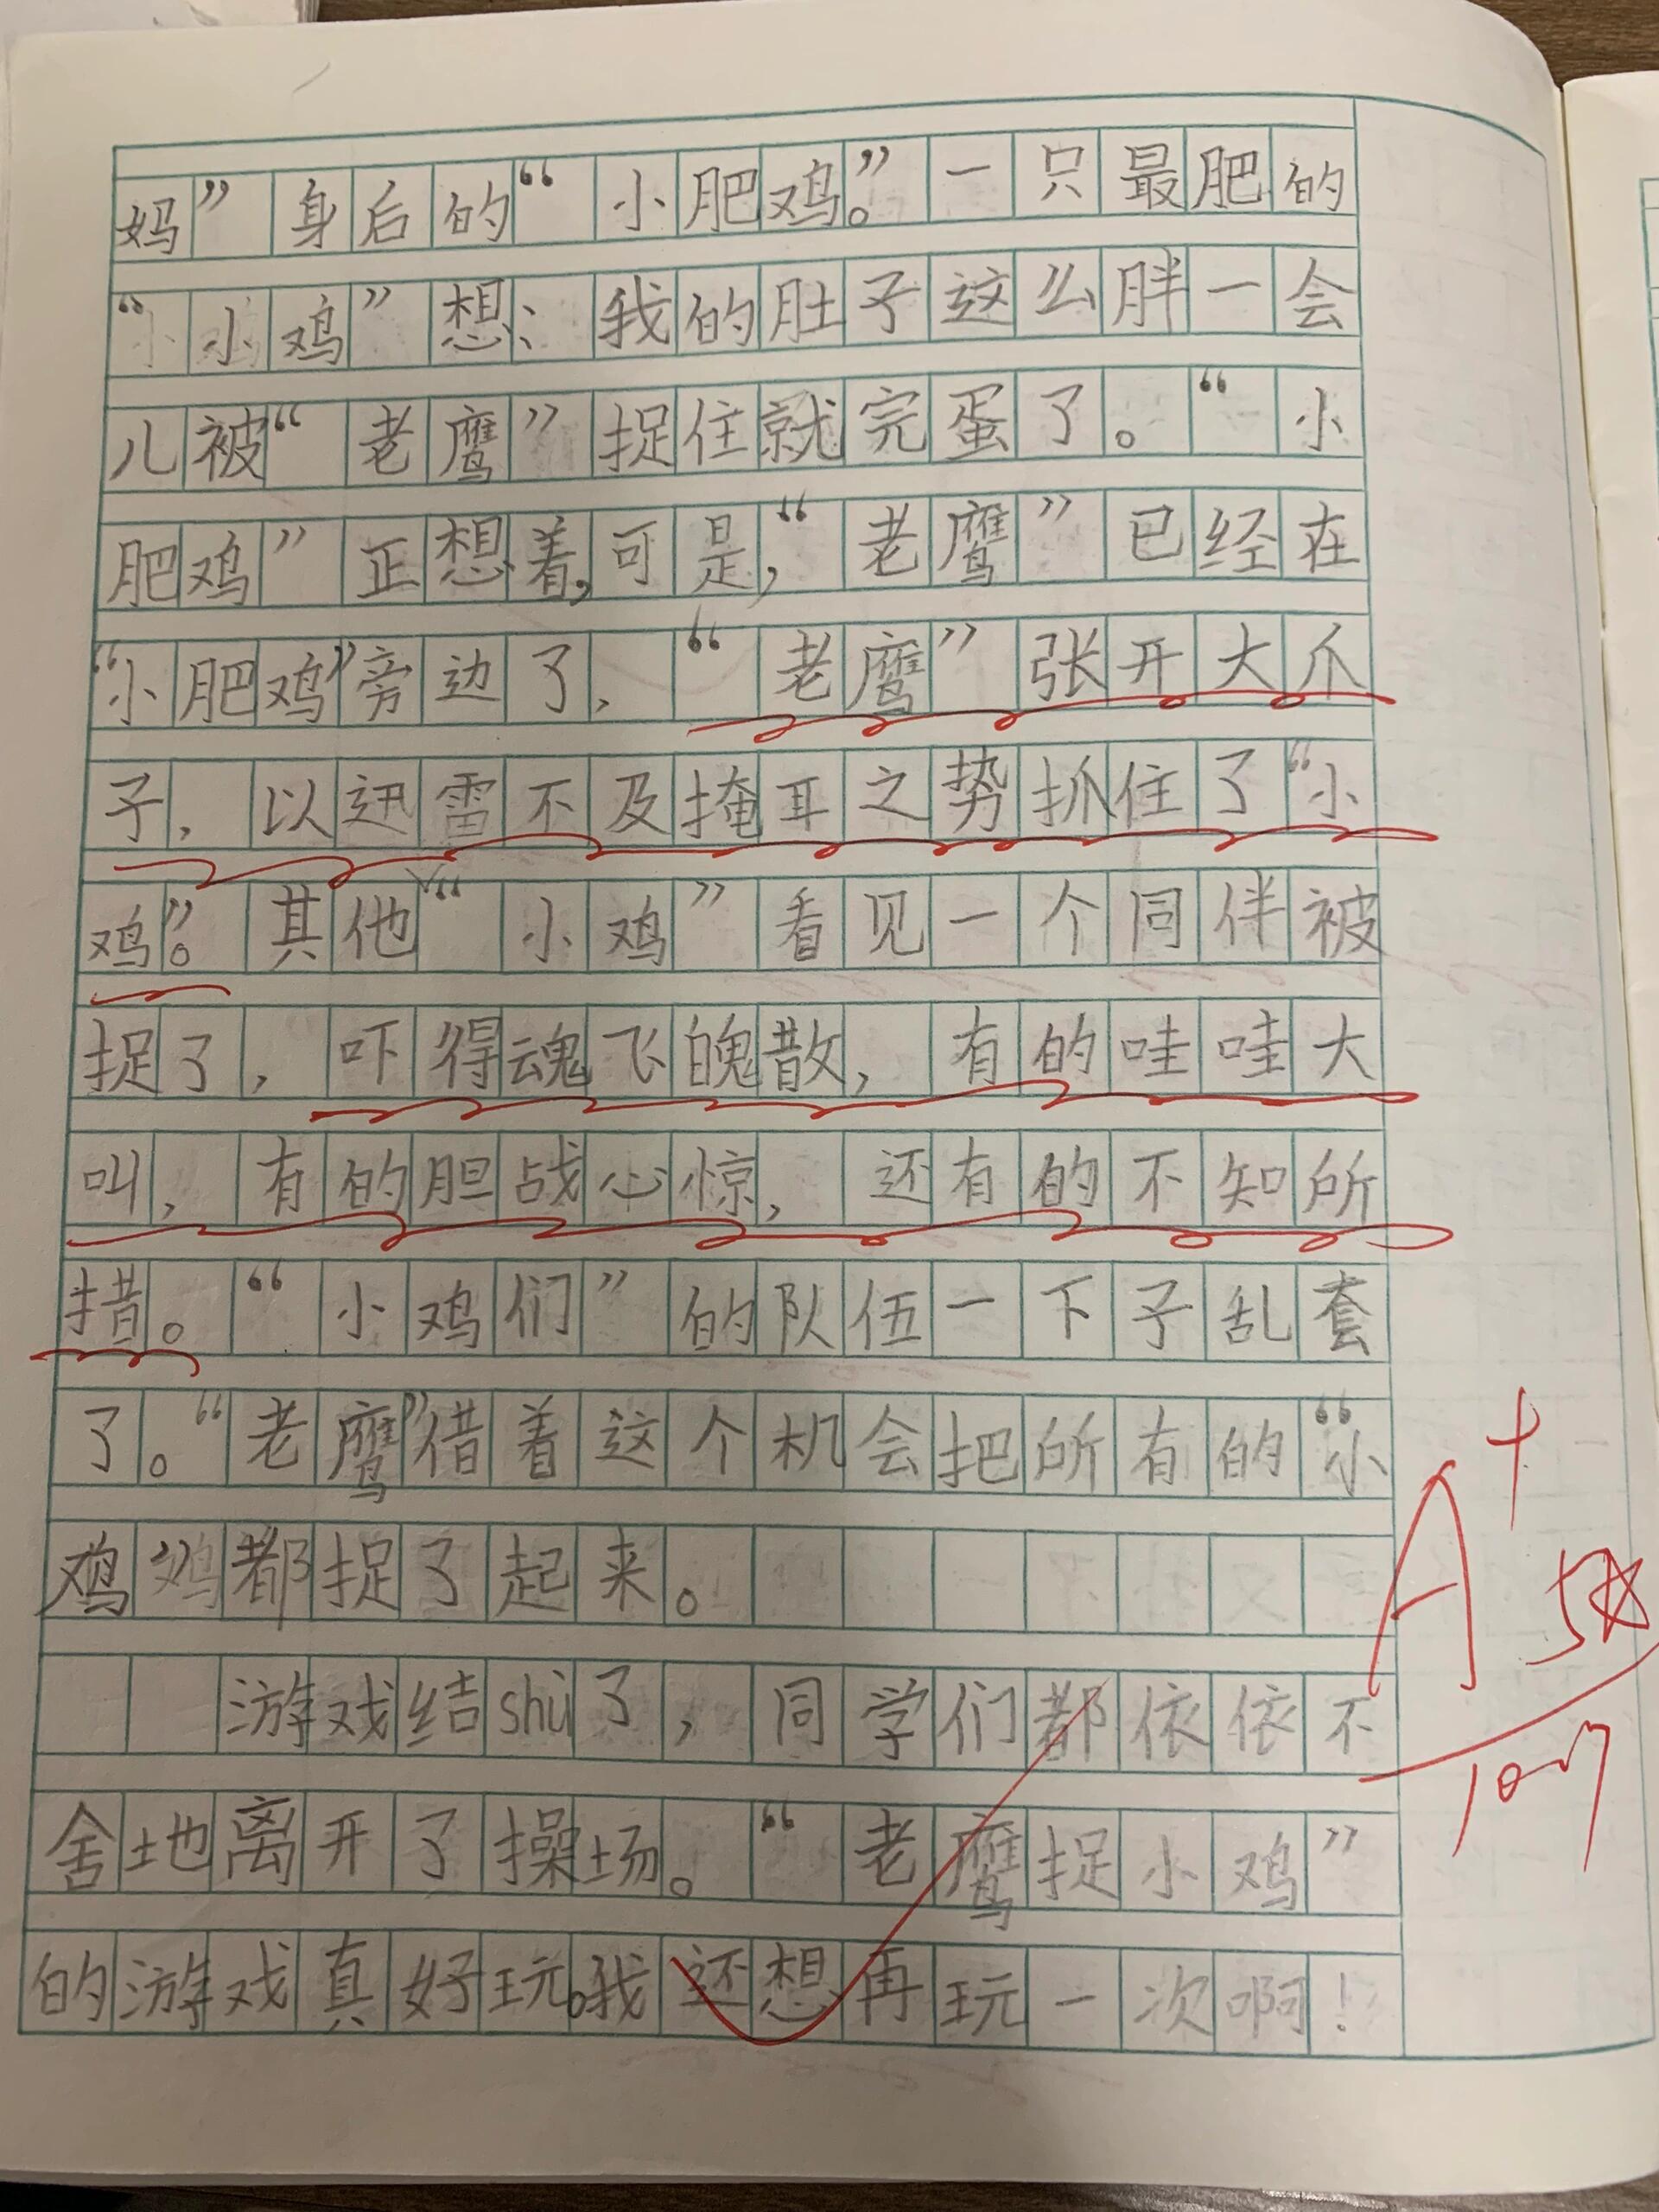 妈”身后的“小肥鸡。”一只最肥的
“小小鸡”想：我的肚子这么胖一会
儿被“老鹰”捉住就完蛋了。“小
肥鸡”正想着，可是，“老鹰”已经在
“小肥鸡”旁边了，“老鹰”张开大爪
子，以迅雷不及掩耳之势抓住了“小
鸡”。其他“小鸡”看见一个同伴被
捉了，吓得魂飞魄散，有的哇哇大
叫，有的胆战心惊，还有的不知所
措。“小鸡们”的队伍一下子乱套
了。“老鹰”借着这个机会把所有的“小
鸡”都捉了起来。
游戏结shù了，同学们都依依不
舍地离开了操场。“老鹰捉小鸡”
的游戏真好玩。我还想再玩一次啊！
A+
5☆